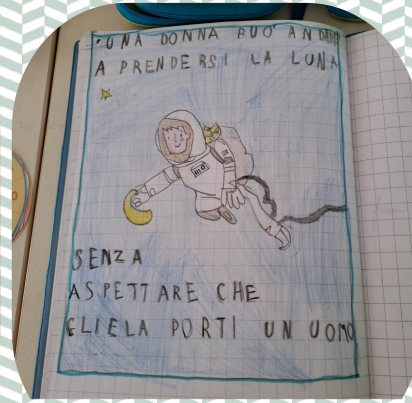 UNA DONNA PUO' ANDARE
A PRENDERSI LA LUNA
SENZA
ASPETTARE CHE
GLIELA PORTI UN UOMO